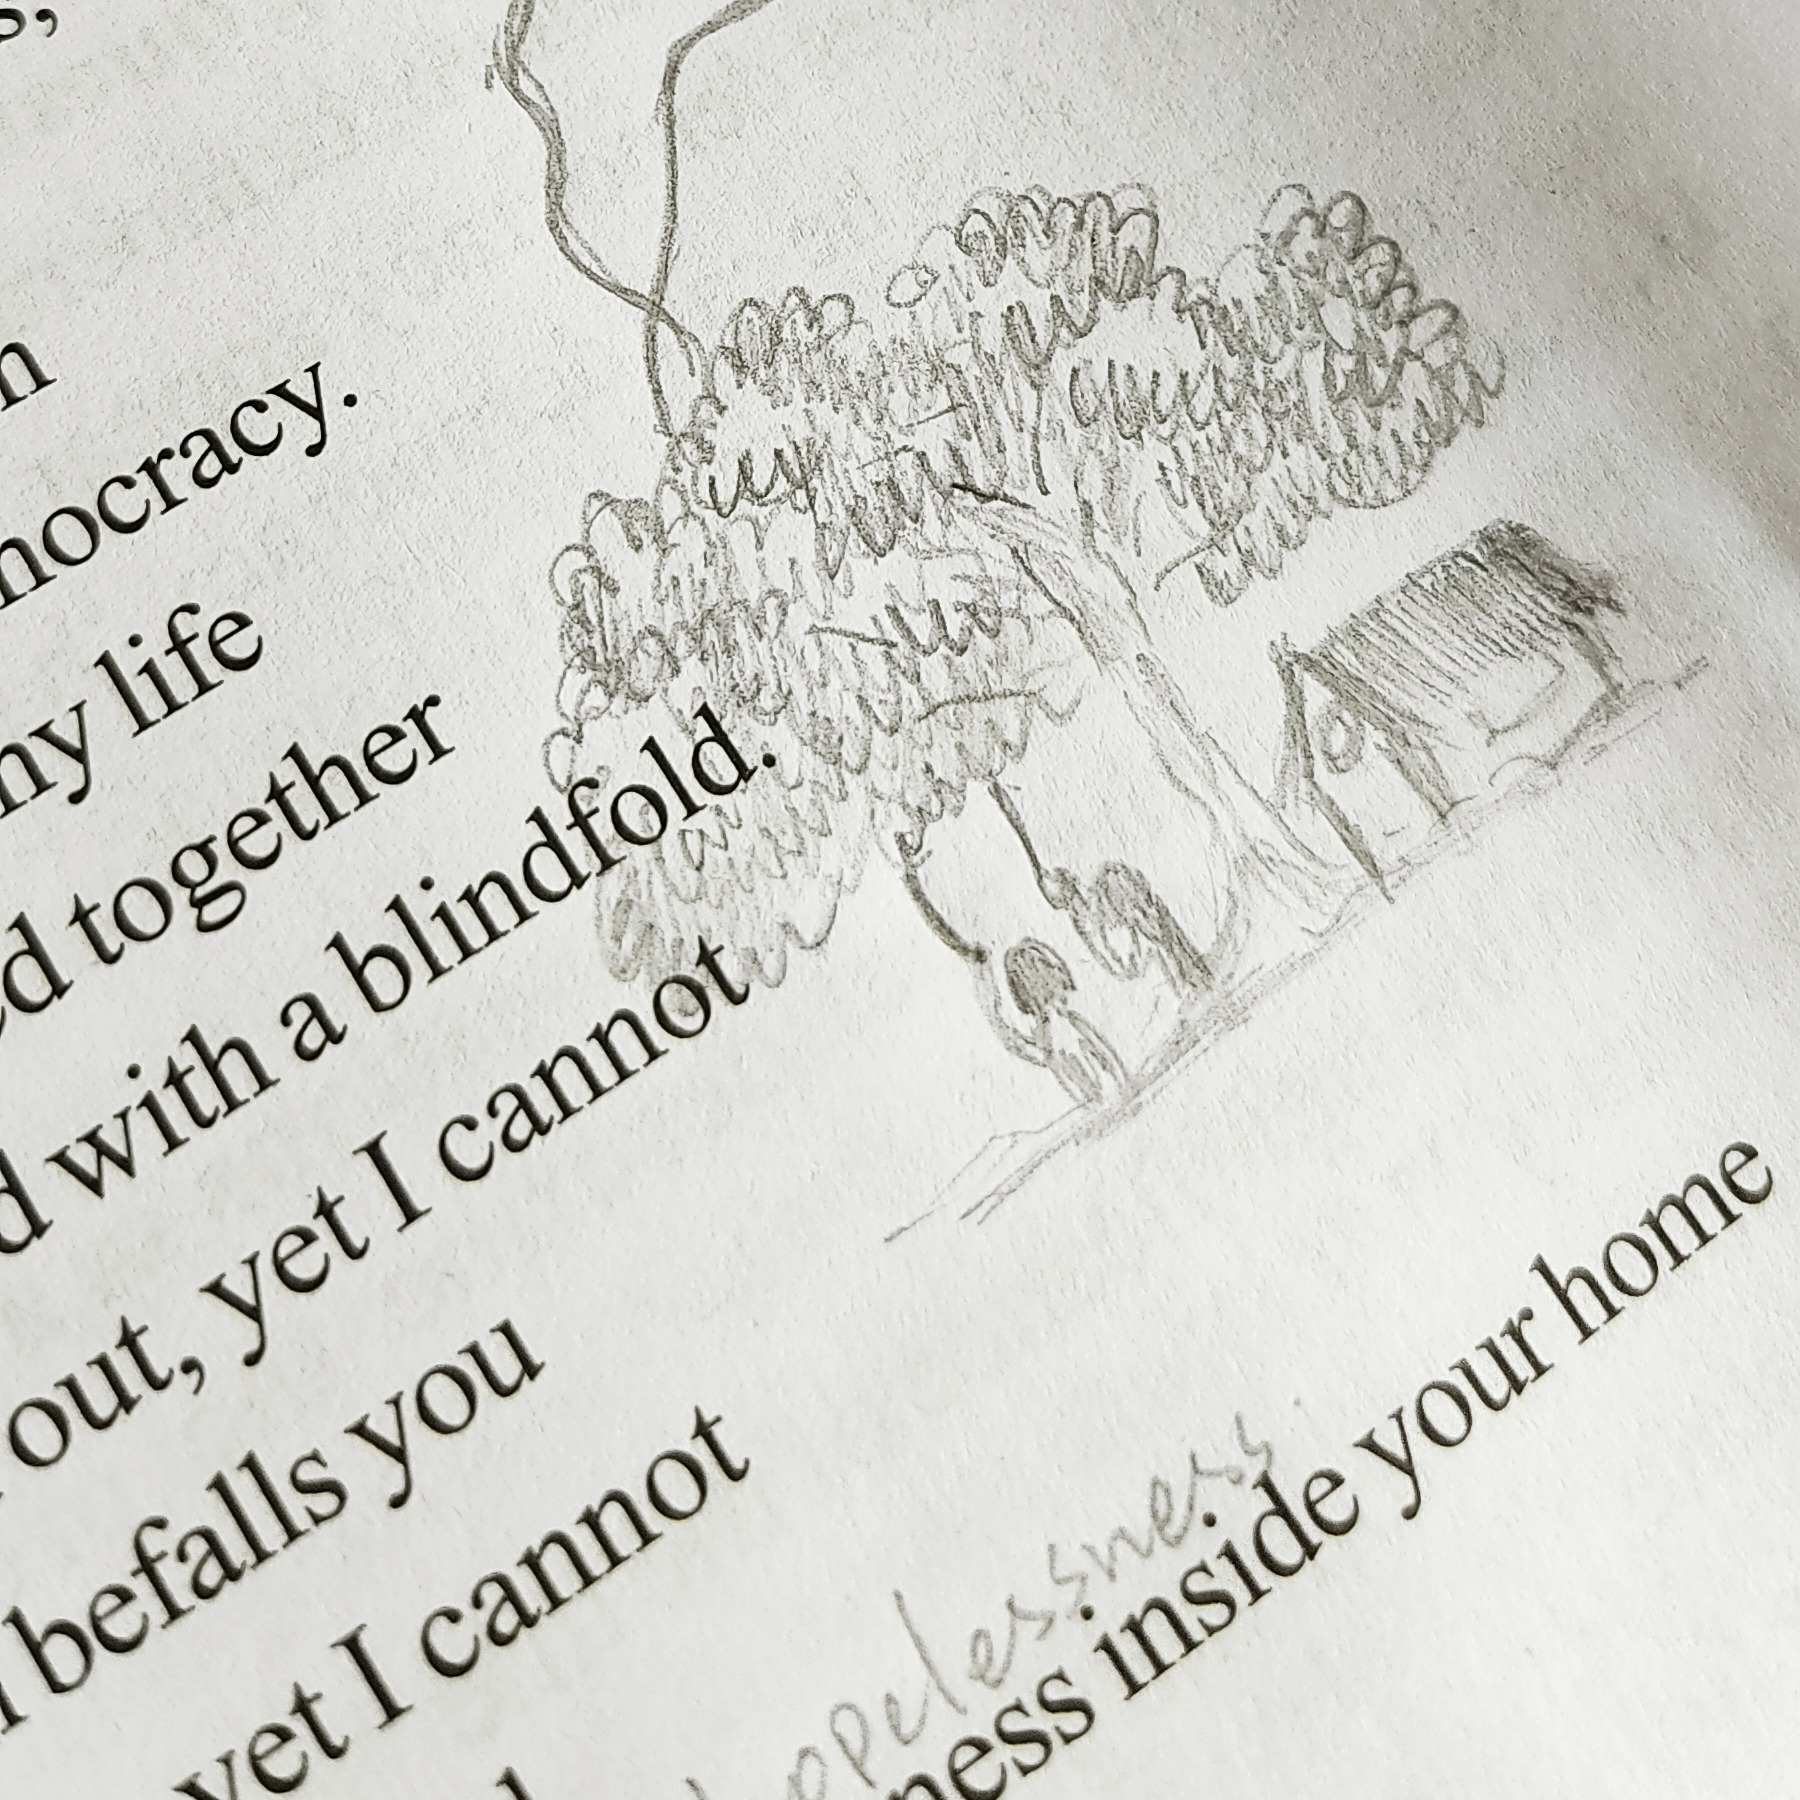 life
together
with a blindfold.
out, yet I cannot
befalls you
yet I cannot
hopelessness.
inside your home